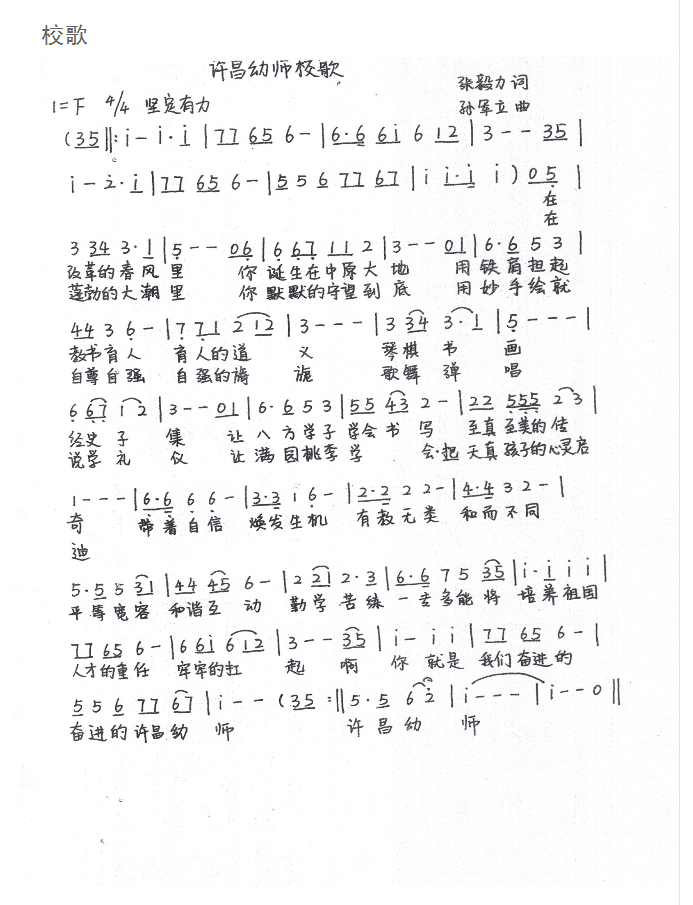 校歌
许昌幼师校歌
张毅力 词
1=F 4/4 坚定有力 孙军立 曲
(35‖: i - i· i | 77 65 6 - | 6·6 6i 6 12 | 3 - - 35 |
i - 2· i | 77 65 6 - | 5 5 6 77 67 | i i·i i ) 05 |
在
在
3 34 3· 1 | 5 - - 06 | 6 67 11 2 | 3 - - 01 | 6· 6 5 3 |
改革的春风里 你诞生在中原大地 用铁肩担起
蓬勃的大潮里 你默默的守望到底 用妙手绘就
44 3 6 - | 7 71 2 12 | 3 - - - | 3 34 3· 1 | 5 - - - |
教书育人 育人的道 义 琴棋 书 画
自尊自强 自强的旖 旎 歌舞 弹 唱
6 67 1 2 | 3 - - 01 | 6· 6 5 3 | 55 43 2 - | 22 555 2 3 |
经史 子 集 让八方学子学会书写 至真至美的传
说学 礼 仪 让满园桃李学 会·把天真孩子的心灵启
1 - - - | 6·6 6 6 - | 3·3 1 6 - | 2·2 2 2 - | 4·4 3 2 - |
奇 带着自信 焕发生机 有教无类 和而不同
迪
5·5 5 31 | 44 45 6 - | 2 21 2·3 | 6·6 7 5 35 | i·i i i |
平等宽容 和谐互 动 勤学苦练 一专多能将 培养祖国
77 65 6 - | 6 6i 6 12 | 3 - - 35 | i - i i | 77 65 6 - |
人才的重任 牢牢的扛 起 啊 你 就是 我们奋进的
5 5 6 77 67 | i - - (35 :‖ 5·5 6 2 | i - - - | i - - 0 ‖
奋进的许昌幼 师 许昌幼 师